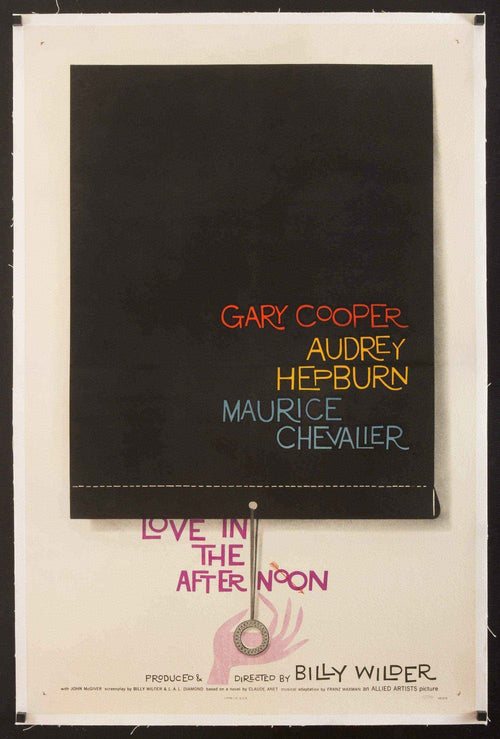 GARY COOPER
AUDREY
HEPBURN
MAURICE
CHEVALIER
LOVE IN
THE
AFTERNOON
PRODUCED & DIRECTED BY BILLY WILDER
with JOHN McGIVER screenplay by BILLY WILDER & I. A. L. DIAMOND based on a novel by CLAUDE ANET musical adaptation by FRANZ WAXMAN an ALLIED ARTISTS picture